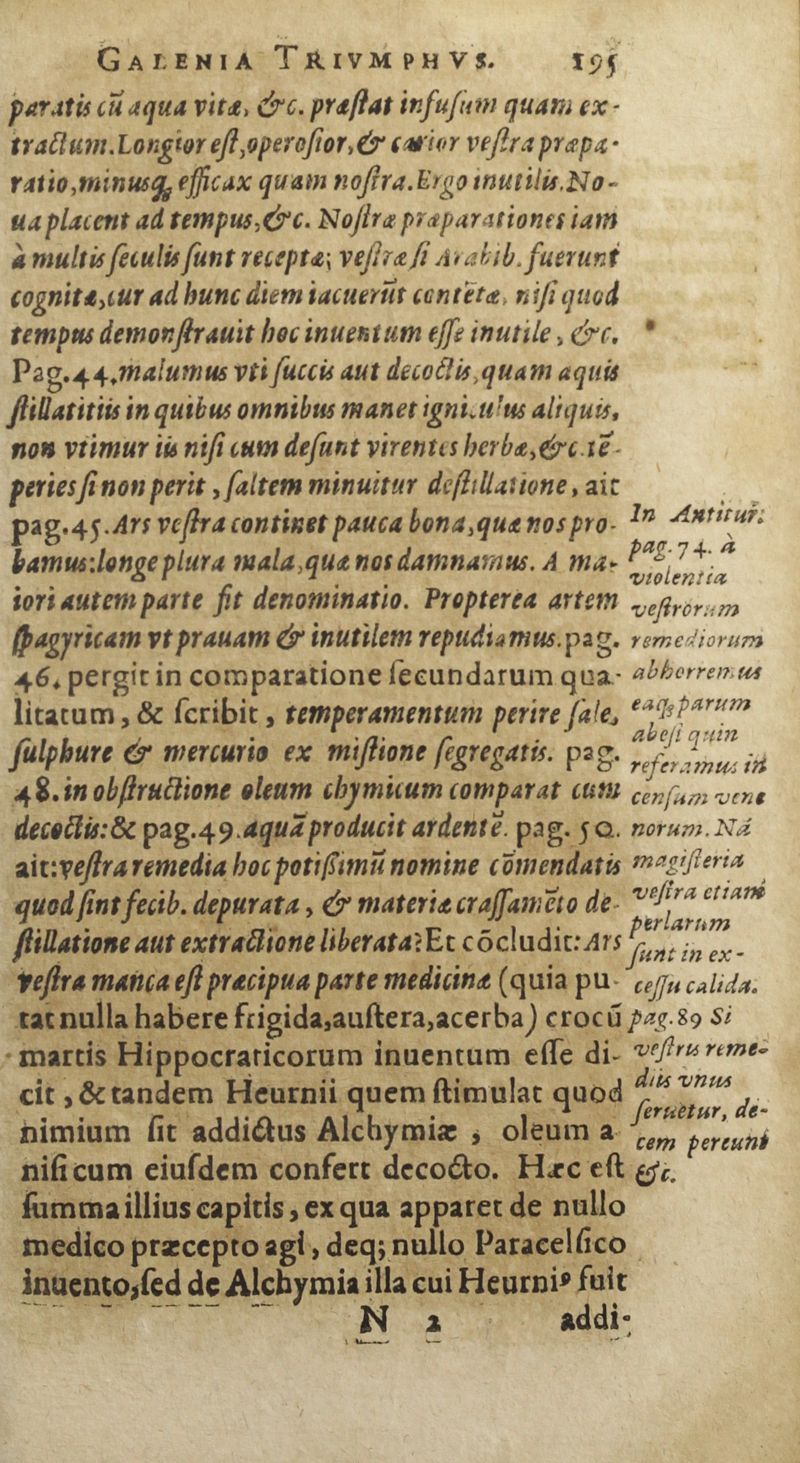 GALENIA TRIVMPHVS. 195
paratis cũ aqua vitæ, &c. præſtat infuſum quam ex-
tractum. Longior eſt, operoſior, & carior veſtra præpa-
ratio, minusq; efficax quam noſtra. Ergo inutilis. No-
ua placent ad tempus, &c. Noſtræ præparationes iam
à multis ſeculis ſunt receptæ; veſtræ ſi Arabib. fuerunt
cognitæ, cur ad hunc diem iacuerũt contẽtæ, niſi quod
tempus demonſtrauit hoc inuentum eſſe inutile, &c.
Pag. 44. malumus vti ſuccis aut decoctis, quam aquis
ſtillatitiis in quibus omnibus manet igniculus aliquis,
non vtimur iis niſi cum deſunt virentes herbæ, &c. tẽ-
peries ſi non perit, ſaltem minuitur deſtillatione, ait
pag. 45. Ars veſtra continet pauca bona, quæ nos pro-
bamus: longe plura mala, quæ nos damnamus. A ma-
iori autem parte fit denominatio. Propterea artem
ſpagyricam vt prauam & inutilem repudiamus. pag.
46. pergit in comparatione ſecundarum qua-
litatum, & ſcribit, temperamentum perire ſale,
ſulphure & mercurio ex miſtione ſegregatis. pag.
48. in obſtructione oleum chymicum comparat cum
decoctis: & pag. 49. aquã producit ardentẽ. pag. 50.
ait: veſtra remedia hoc potiſſimũ nomine cõmendatis
quod ſint fecib. depurata, & materiæ craſſamẽto de-
ſtillatione aut extractione liberata? Et cõcludit: Ars
veſtra manca eſt præcipua parte medicinæ (quia pu-
tat nulla habere frigida, auſtera, acerba) crocũ
martis Hippocraticorum inuentum eſſe di-
cit, & tandem Heurnii quem ſtimulat quod
nimium ſit addictus Alchymiæ, oleum a
niſi cum eiuſdem confert decocto. Hæc eſt
ſumma illius capitis, ex qua apparet de nullo
medico præcepto agi, deq; nullo Paracelſico
inuento, ſed de Alchymia illa cui Heurniꝰ fuit
N 2 addi-
In Antitur.
pag. 74. a
violentia
veſtrorum
remediorum
abhorremus
eaq; parum
abeſt quin
referamus in
cenſum vene
norum. Nã
magiſteria
veſtra etiam
perlarum
ſunt in ex-
ceſſu calida.
pag. 89 Si
veſtris reme-
diis vnus
ſeruetur, de-
cem pereunt
&c.